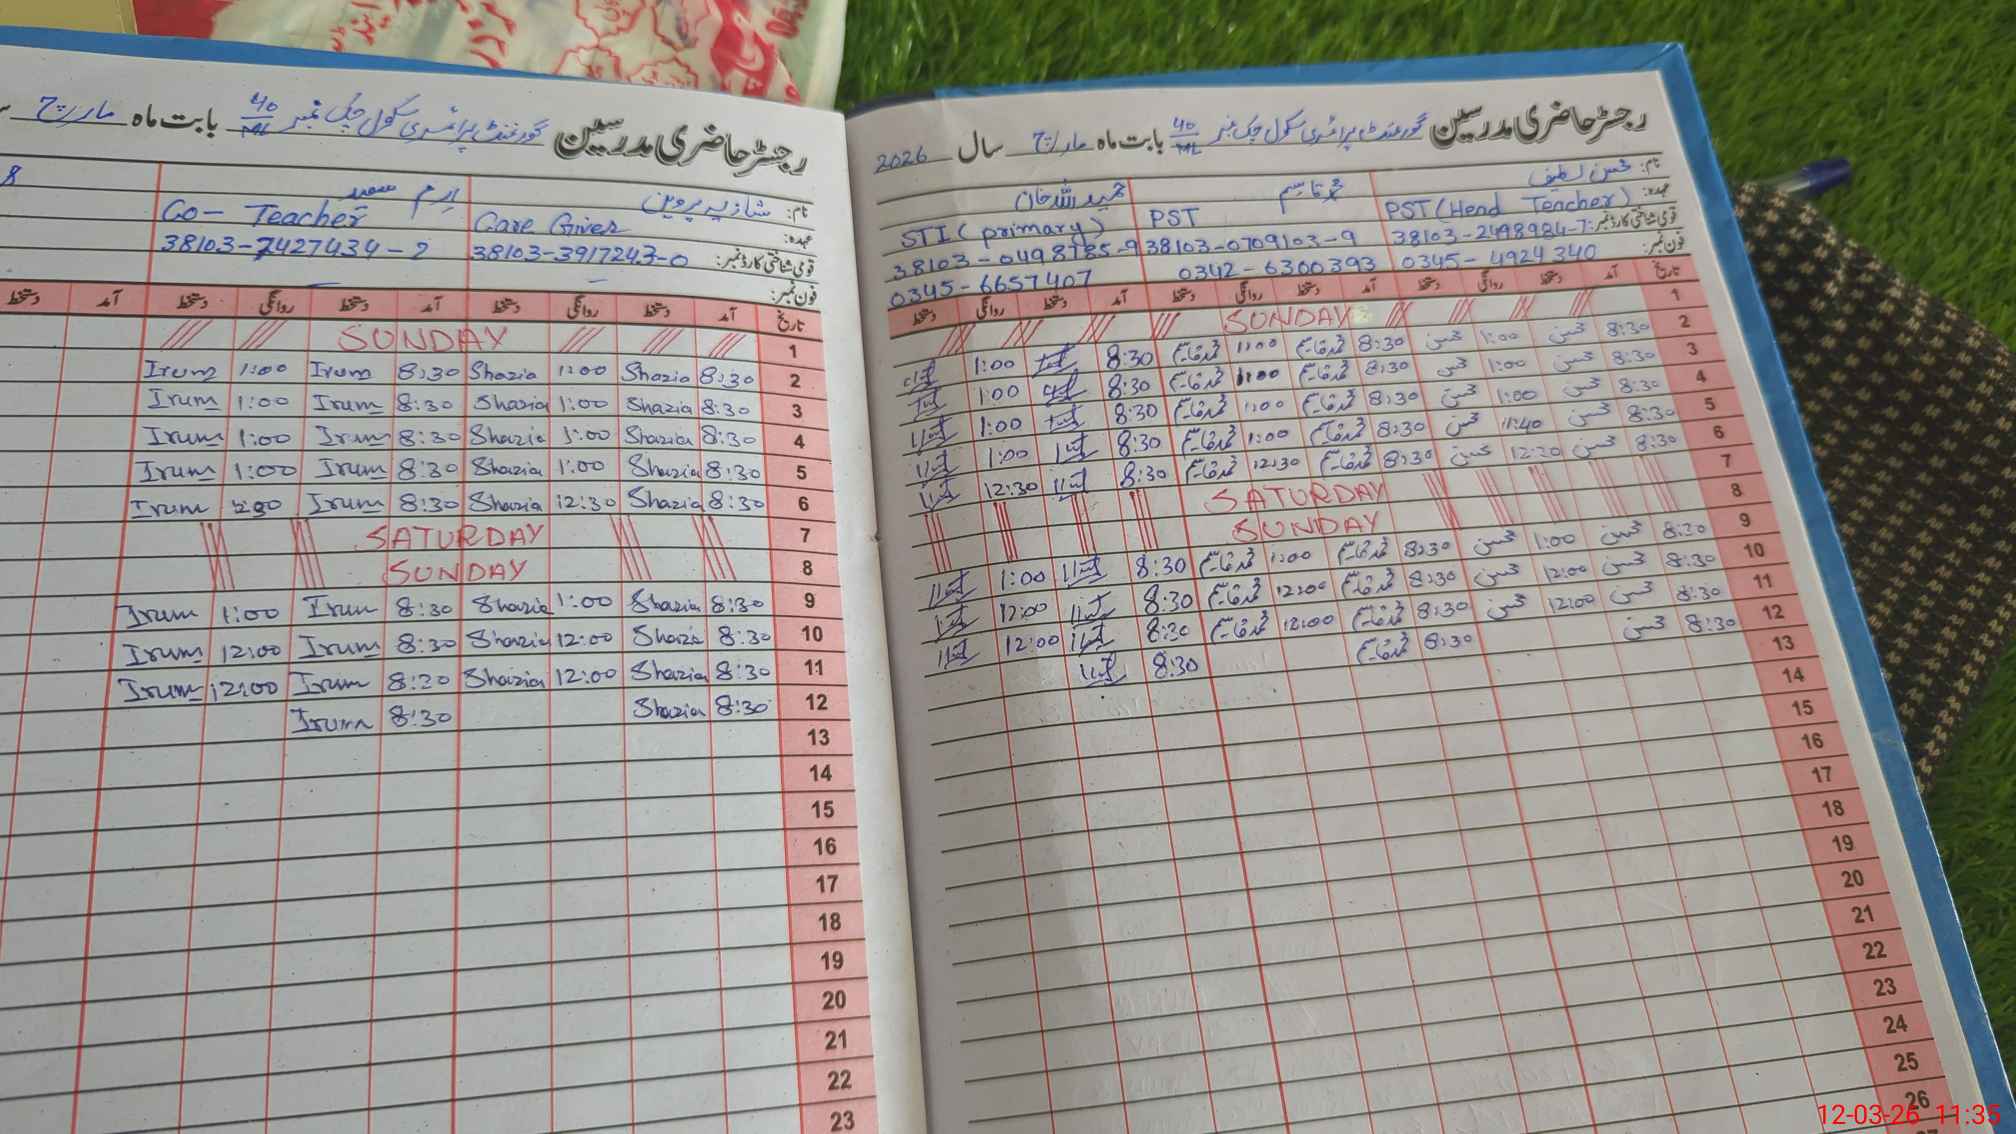 رجسٹر حاضری مدرسین گورنمنٹ پرائمری سکول چک نمبر 40/ML بابت ماہ مارچ
نام: شازیہ پروین ارم سعید
عہدہ: Care Giver Co- Teacher
قومی شناختی کارڈ نمبر: 38103-3917243-0 38103-7427434-2
فون نمبر:
تاریخ آمد دستخط روانگی دستخط آمد دستخط روانگی دستخط آمد دستخط
1 SUNDAY
2 8:30 Shazia 1:00 Shazia 8:30 Irum 1:00 Irum
3 8:30 Shazia 1:00 Shazia 8:30 Irum 1:00 Irum
4 8:30 Shazia 1:00 Shazia 8:30 Irum 1:00 Irum
5 8:30 Shazia 1:00 Shazia 8:30 Irum 1:00 Irum
6 8:30 Shazia 12:30 Shazia 8:30 Irum Irum
7 SATURDAY
8 SUNDAY
9 8:30 Shazia 1:00 Shazia 8:30 Irum 1:00 Irum
10 8:30 Shazia 12:00 Shazia 8:30 Irum 12:00 Irum
11 8:30 Shazia 12:00 Shazia 8:30 Irum 12:00 Irum
12 8:30 Shazia 8:30 Irum
13
14
15
16
17
18
19
20
21
22
23
رجسٹر حاضری مدرسین گورنمنٹ پرائمری سکول چک نمبر 40/ML بابت ماہ مارچ سال 2026
نام: محسن لطیف محمد قاسم حمید اللہ خان
عہدہ: PST (Head Teacher) PST STI (primary)
قومی شناختی کارڈ نمبر: 38103-2498984-7 38103-0709103-9 38103-0498785-9
فون نمبر: 0345-4924340 0342-6300393 0345-6657407
تاریخ آمد دستخط روانگی دستخط آمد دستخط روانگی دستخط آمد دستخط روانگی دستخط
1 SUNDAY
2 8:30 محسن 1:00 محسن 8:30 محمد قاسم 1:00 محمد قاسم 8:30 1:00
3 8:30 محسن 1:00 محسن 8:30 محمد قاسم 1:00 محمد قاسم 8:30 1:00
4 8:30 محسن 1:00 محسن 8:30 محمد قاسم 1:00 محمد قاسم 8:30 1:00
5 8:30 محسن 11:40 محسن 8:30 محمد قاسم 1:00 محمد قاسم 8:30 1:00
6 8:30 محسن 12:20 محسن 8:30 محمد قاسم 12:30 محمد قاسم 8:30 12:30
7 SATURDAY
8 SUNDAY
9 8:30 محسن 1:00 محسن 8:30 محمد قاسم 1:00 محمد قاسم 8:30 1:00
10 8:30 محسن 12:00 محسن 8:30 محمد قاسم 12:00 محمد قاسم 8:30 12:00
11 8:30 محسن 12:00 محسن 8:30 محمد قاسم 12:00 محمد قاسم 8:30 12:00
12 8:30 محسن 8:30 محمد قاسم 8:30
13
14
15
16
17
18
19
20
21
22
23
24
25
26
12-03-26 11:35